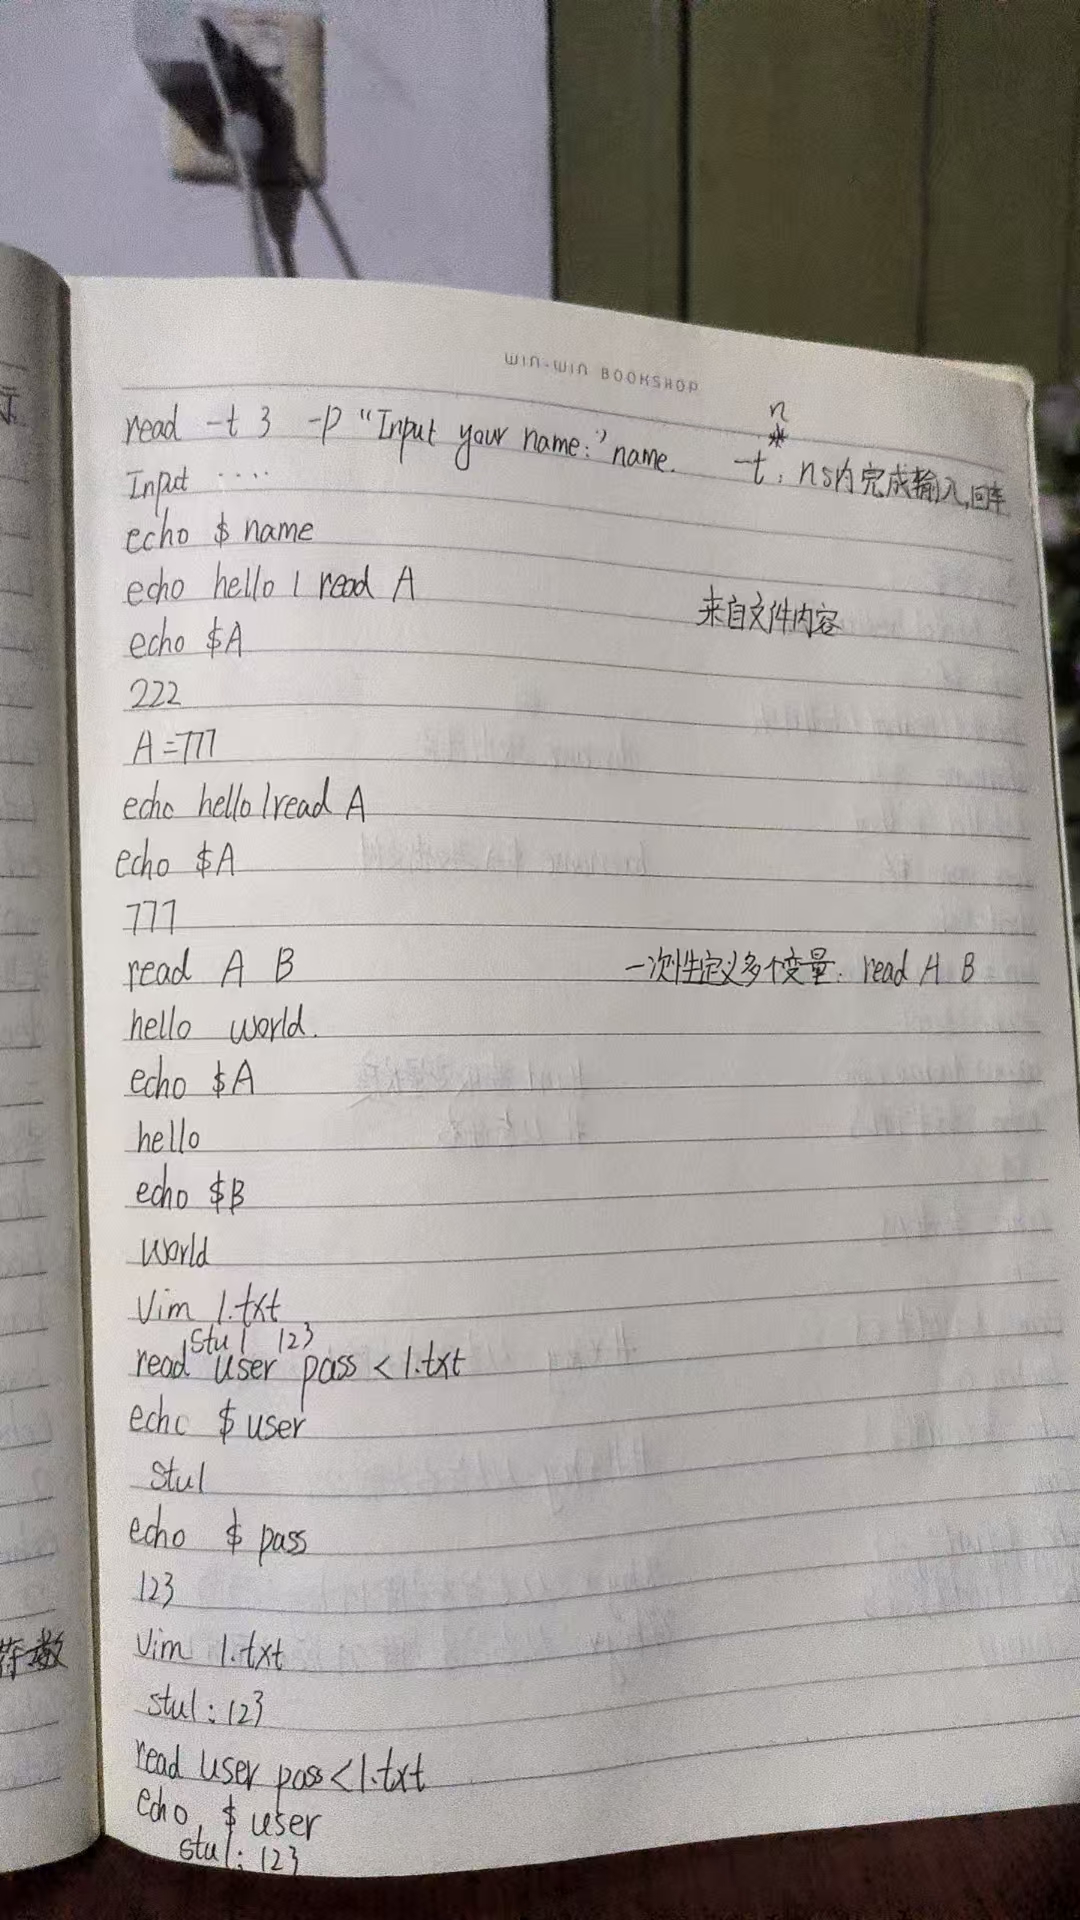 WIN-WIN BOOKSHOP
read -t 3 -p "Input your name:" name. -t: ns内完成输入,回车
n
Input ····
echo $ name
echo hello | read A
来自文件内容
echo $A
222
A=777
echo hello | read A
echo $A
777
read A B 一次性定义多个变量: read A B
hello world.
echo $A
hello
echo $B
world
Vim 1.txt
stu1 123
read user pass < 1.txt
echo $ user
stu1
echo $ pass
123
Vim 1.txt
stu1:123
read user pass<1.txt
echo $ user
stu1:123
示
符数